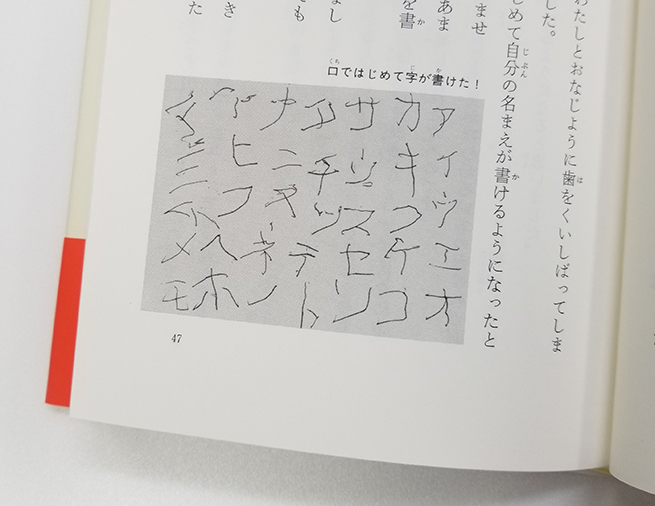 わたしとおなじように歯をくいしばってしま
した。
じめて自分の名まえが書けるようになったと
ませ
あま
を書
まし
ても
き
た
口ではじめて字が書けた！
アイウエオ
カキクケコ
サシスセソ
タチツテト
ナニヌネノ
ハヒフヘホ
マミムメモ
47